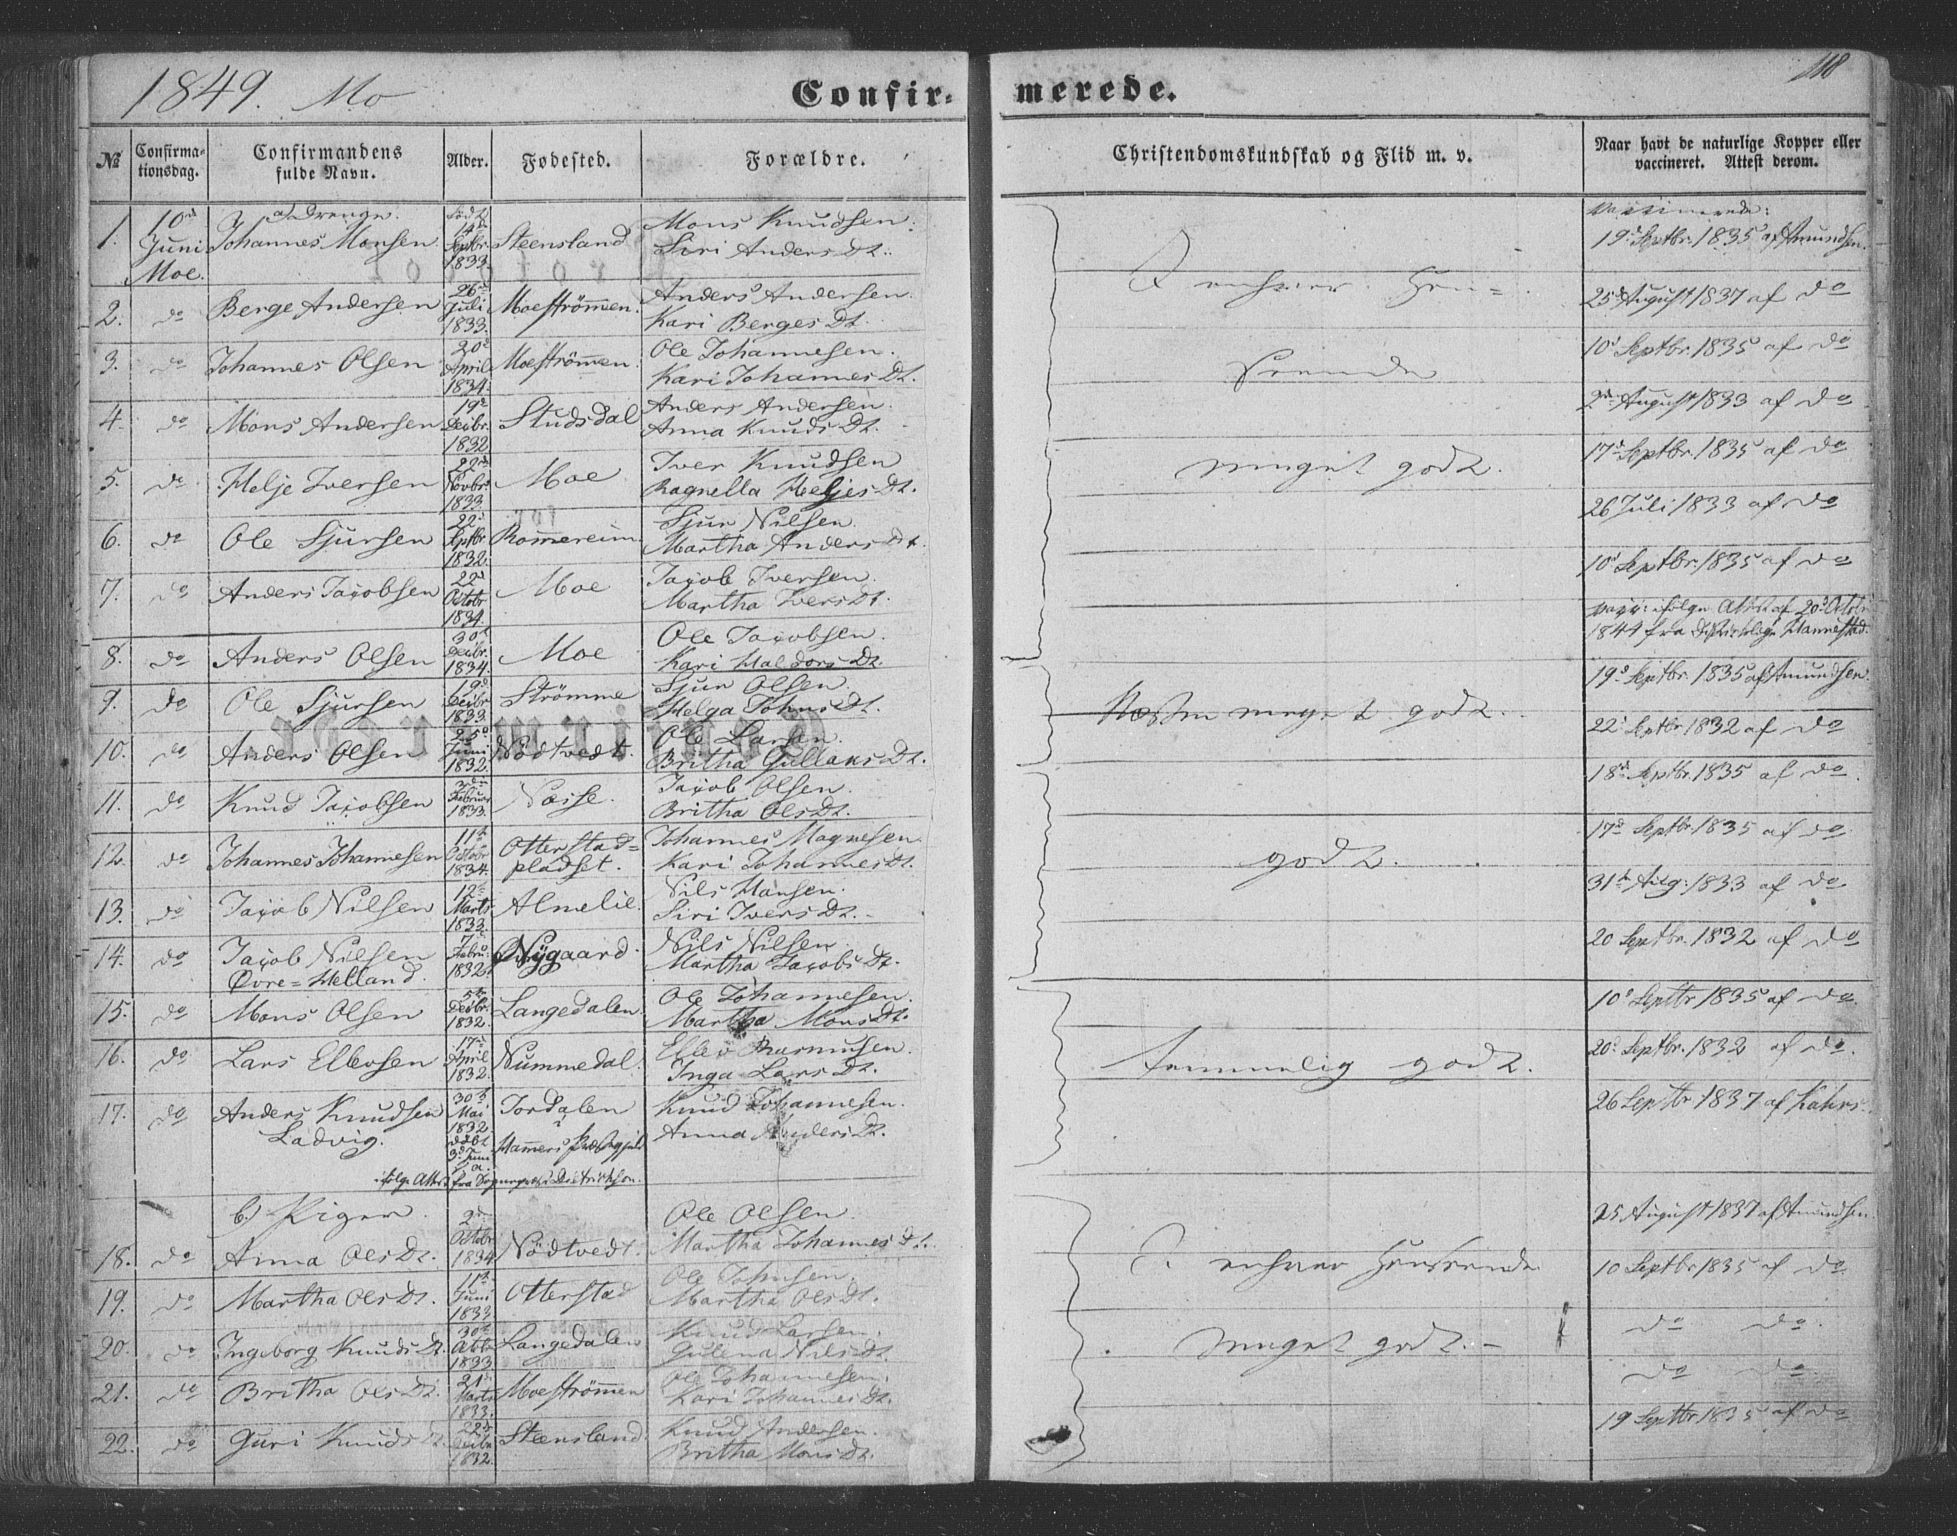 1849. Mo
Confir-
merede.
118
№
Confirma-
tionsdag.
Confirmandens
fulde Navn.
Alder.
Fødested.
Forældre.
Christendomskundskab og Flid m. v.
Naar havt de naturlige Kopper eller
vaccineret. Attest derom.
a) Drenge.
1. 10de Juni Moe. Johannes Monsen født 14d Septbr. 1833. Steensland Mons Knudsen. Siri Anders Dt.
Vaccinerede:
19d Septbr. 1835 af Amundsen.
2. do Berge Andersen 26d Juli 1833. Moeströmmen. Anders Andersen. Kari Berges Dt.
25d August 1837 af do
3. do Johannes Olsen 20d April 1834. Moeströmmen. Ole Johannesen. Kari Johannes Dt.
10d Septbr. 1835 af do
4. do Mons Andersen 19d Decbr. 1832 Studsdal Anders Andersen. Anna Knuds Dt.
2d August 1833 af do
5. do Helje Iversen 22d Novbr. 1833. Moe Iver Knudsen Ragnella Heljes Dt.
17d Septbr. 1835 af do
6. do Ole Sjursen 22d Septbr. 1832. Rommereim Sjur Nilsen. Martha Anders Dt.
26 Juli 1833 af do
7. do Anders Jacobsen 22d Octobr 1834. Moe Jacob Iversen. Martha Ivers Dt.
10d Septbr. 1835 af do
8. do Anders Olsen 30d Decbr. 1834. Moe Ole Jacobsen. Kari Haldors Dt.
vacc: ifølge Attest af 20d Octobr
1849 fra Districtslæge Hannestad.
meget godt.
9. do Ole Sjursen 19d Decbr. 1833. Strömme Sjur Olsen. Helga Johns Dt.
19d Septbr. 1835 af Amundsen.
10. do Anders Olsen 25d Juni 1832. Nödtvedt. Ole Larsen. Britha Gullaks Dt.
22d Septbr 1832 af do
Næsten meget godt.
11. do Knud Jacobsen 2den Februar 1833. Næsse. Jacob Olsen. Britha Ols Dt.
18d Septbr. 1835 af do.
12. do Johannes Johannesen 11t Octobr 1834. Otterstad=pladset. Johannes Magnesen. Kari Johannes Dt.
17d Septbr. 1835 af do.
13. do Jacob Nilsen 12t Marts 1833. Almelie. Nils Hansen. Siri Ivers Dt.
31t Aug: 1833 af do
14. do Jacob Nilsen Øvre=Helland. 7d Febru: 1832. Nygaard. Nils Nilsen. Martha Jacobs Dt.
20 Septbr. 1832 af do
godt.
15. do Mons Olsen 5t Decbr. 1832. Langedalen. Ole Johannesen. Martha Mons Dt.
10d Septbr 1835 af do.
16. do Lars Ellevsen 17d April 1832. Nummedal. Ellev Rasmusen. Inga Lars Dt.
20d Septbr. 1832 af do.
17. do Anders Knudsen Ladvig. 30t Mai 1832 døbt 3d Juni s. a. Jordalen Hammers Præstegjeld Knud Johannesen. Anna Anders Dt.
ifølge Attest fra Sognepræst Dietrichson.
26 Septbr 1837 af Kahrs.
temmelig godt.
b.) Piger.
18. do Anna Ols Dt. 2den Octobr 1834 Nödtvedt. Ole Olsen. Martha Johannes Dt.
25 August 1837 af Amundsen.
19. do Martha Ols Dt. 11t Juni 1833 Otterstad Ole Johnsen. Martha Ols Dt.
10 Septbr 1835 af do.
20. do Ingeborg Knuds Dt. 30t 1833. Langedalen Knud Larsen. Gulena Nils Dt.
do do.
21. do Britha Ols Dt. 21d Marts 1833. Moeströmmen Ole Johannesen. Kari Johannes Dt.
do do.
22. do Guri Knuds Dt. 22d Decbr 1832. Steensland. Knud Andersen. Britha Mons Dt.
19 Septbr 1835 af do
I enhver Henseende
meget godt.